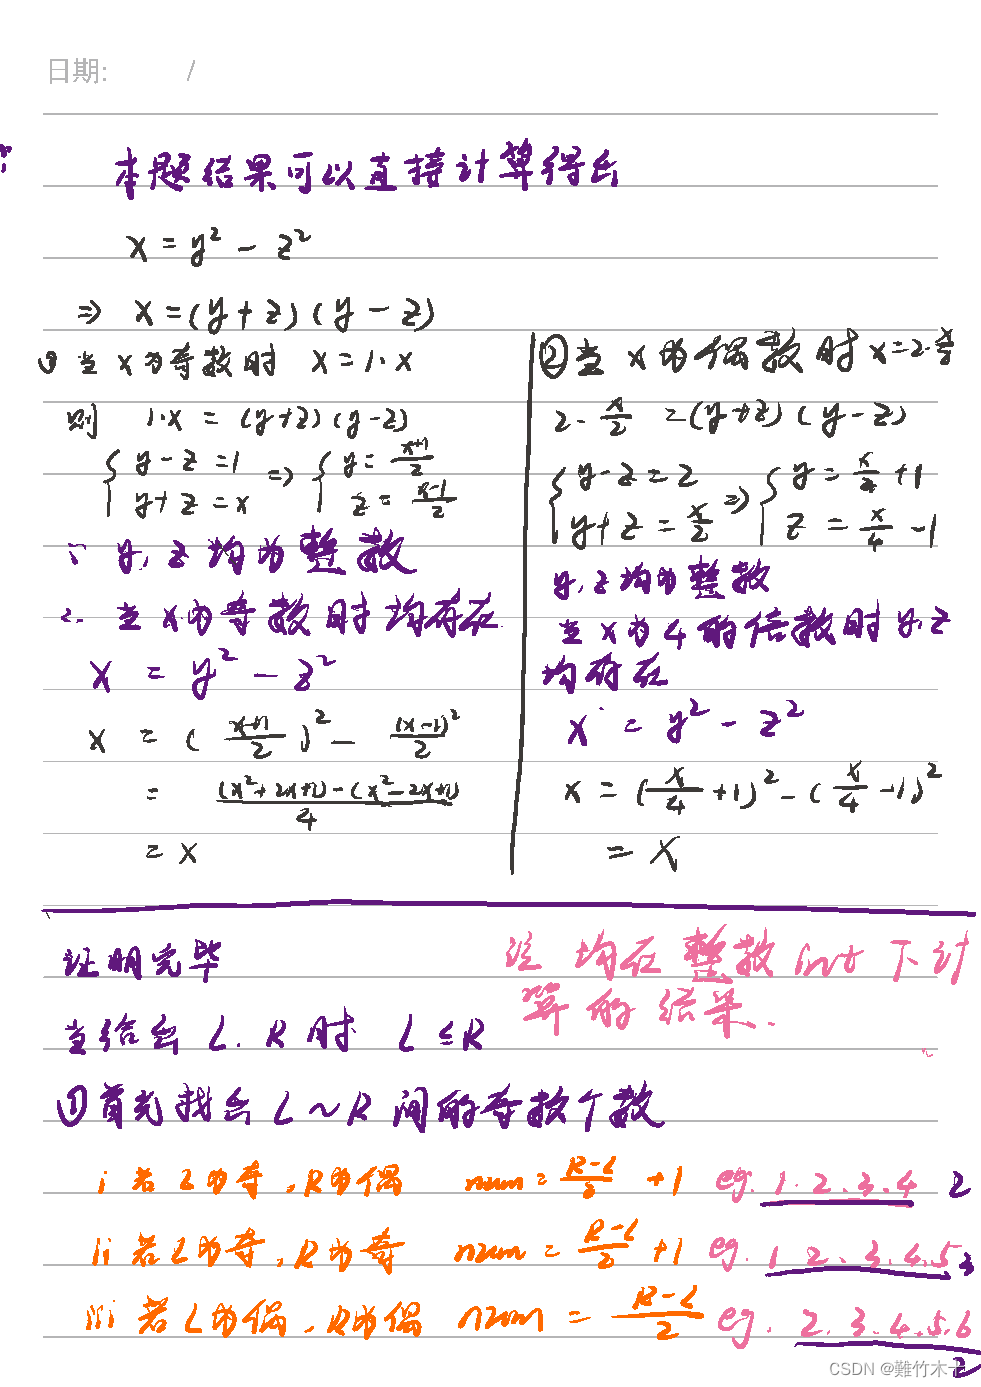 日期: /
本题结果可以直接计算得出
x = y² - z²
⇒ x = (y + z) (y - z)
① 当 x 为奇数时 x = 1·x
则 1·x = (y+z) (y-z)
{ y - z = 1 ⇒ { y = (x+1)/2
{ y + z = x { z = (x-1)/2
∵ y, z 均为整数
∴ 当 x 为奇数时均存在
x = y² - z²
x = ( (x+1)/2 )² - (x-1)²/2
= ((x²+2x+1)-(x²-2x+1))/4
= x
② 当 x 为偶数时 x = 2·x/2
2·x/2 = (y+z) (y-z)
{ y - z = 2 ⇒ { y = x/4 + 1
{ y + z = x/2 { z = x/4 - 1
y, z 均为整数
当 x 为 4 的倍数时 y, z
均存在
x = y² - z²
x = (x/4 + 1)² - (x/4 - 1)²
= x
证明完毕
注 均在整数 int 下计
算的结果.
当给出 L. R 时 L ≤ R
① 首先找出 L ~ R 间的奇数个数
i 若 L 为奇, R 为偶 num = (R-L)/2 + 1 eg. 1. 2. 3. 4 2
ii 若 L 为奇, R 为奇 num = (R-L)/2 + 1 eg. 1 2. 3. 4. 5 3
iii 若 L 为偶, R 为偶 num = (R-L)/2 eg. 2. 3. 4. 5. 6
2
CSDN @難竹木